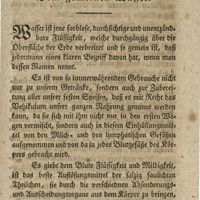 Wasser ist jene farblose, durchsichtige und unentzünd-
bare Flüssigkeit, welche durchgängig über die
Oberfläche der Erde verbreitet und so gemein ist, daß
jedermann einen klaren Begriff davon hat, wenn man
dessen Namen nennt.
Es ist von so immerwährendem Gebrauche nicht
nur zu unserm Getränke, sondern auch zur Zuberei-
tung aller unserer festen Speisen, daß es mit Recht das
Vehikulum unserer ganzen Nahrung genannt werden
kann, da sie sich mit ihm nicht nur in den ersten We-
gen vermischt, sondern auch in diesem Einhüllungsmittel
von den Milch- und den lymphatischen Gefäßen
aufgenommen und von da in jedes Blutgefäße des Kör-
pers gebracht wird.
Es giebt dem Blute Flüssigkeit und Mildigkeit,
ist das beste Auflösungsmittel der salzig faulichten
Theilchen, sie durch die verschiednen Absonderungs-
und Ausscheidungsorgane aus dem Körper zu bringen,